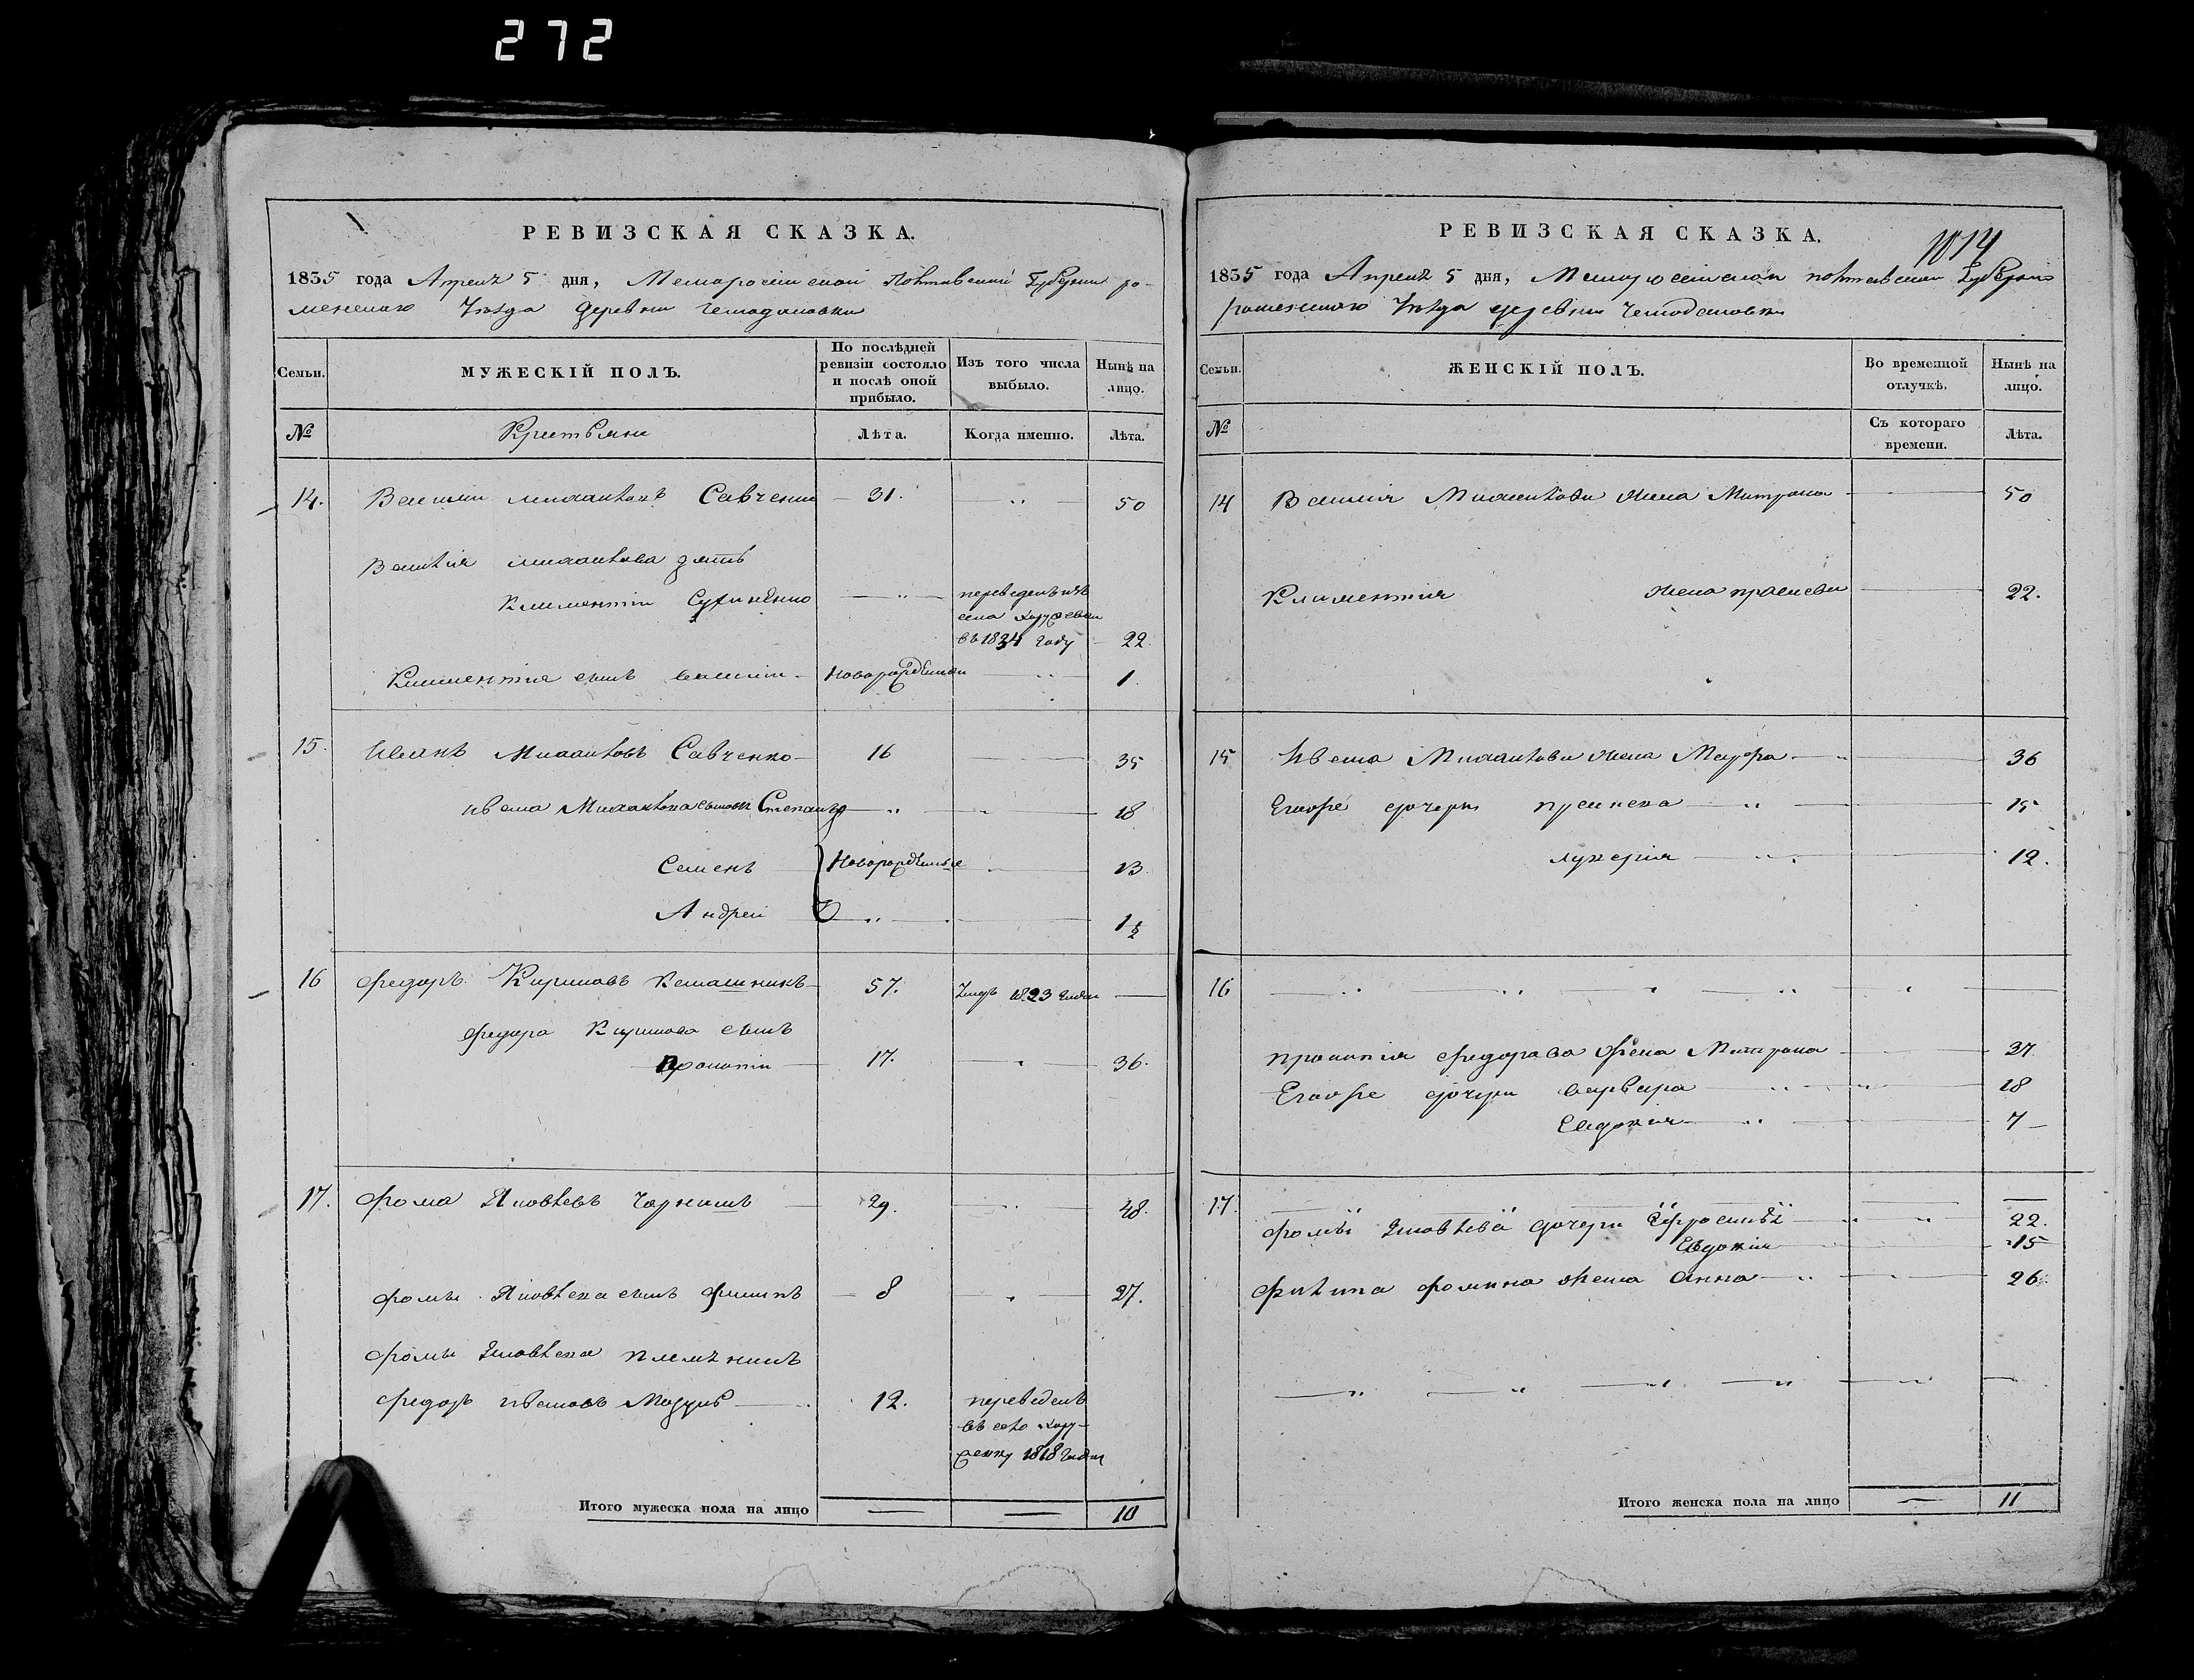 272
РЕВИЗСКАЯ СКАЗКА.
1835 года Апреля 5 дня, Малороссійской Полтавской Губерніи ро-
менскаго Уѣзда деревни Чемодановки
Семьи.
МУЖЕСКІЙ ПОЛЪ.
По послѣдней ревизіи состояло и послѣ оной прибыло.
Изъ того числа выбыло.
Нынѣ на лицо.
№
Крестьяне
Лѣта.
Когда именно.
Лѣта.
14. Василій Михайловъ Савченко 31. 50
Василія Михайлова зять
Климентій переведенъ изъ
села
въ 1834 году 22.
Климентія сынъ Василій Новорожденный 1.
15. Иванъ Михайловъ Савченко 16 35
Ивана Михайлова сыновья Степанъ 18
Семенъ Новорожденные 13
Андрей 1½
16 Федоръ Кириловъ 57. Умеръ 1823 Года
Федора Кирилова сынъ
Прокопій 17. 36.
17. Фома Яковлевъ Чернышъ 29. 48.
Фомы Яковлева сынъ Филипъ 8 27.
Фомы Яковлева племянникъ
Федоръ Ивановъ 12. переведенъ
въ село Хору-
жевку 1818 Года
Итого мужеска пола на лицо 10
РЕВИЗСКАЯ СКАЗКА.
1835 года Апреля 5 дня, Малороссійской полтавской Губерніи
роменскаго Уѣзда деревни Чемодановки
Семьи.
ЖЕНСКІЙ ПОЛЪ.
Во временной отлучкѣ.
Нынѣ на лицо.
№
Съ котораго времени.
Лѣта.
14 Василія Михайлова жена Матрона 50
Климентія жена Прасковья 22.
15 Ивана Михайлова жена Мавра 36
Егоже дочери 15
Лукерія 12.
16
Прокопія Федорова жена Матрона 37
Егоже дочери Варвара 18
Евдокія 7
17.
Фомы Яковлева дочери Ефросинья 22.
Евдокія 15
Филипа Фомина жена Анна 26.
Итого женска пола на лицо 11